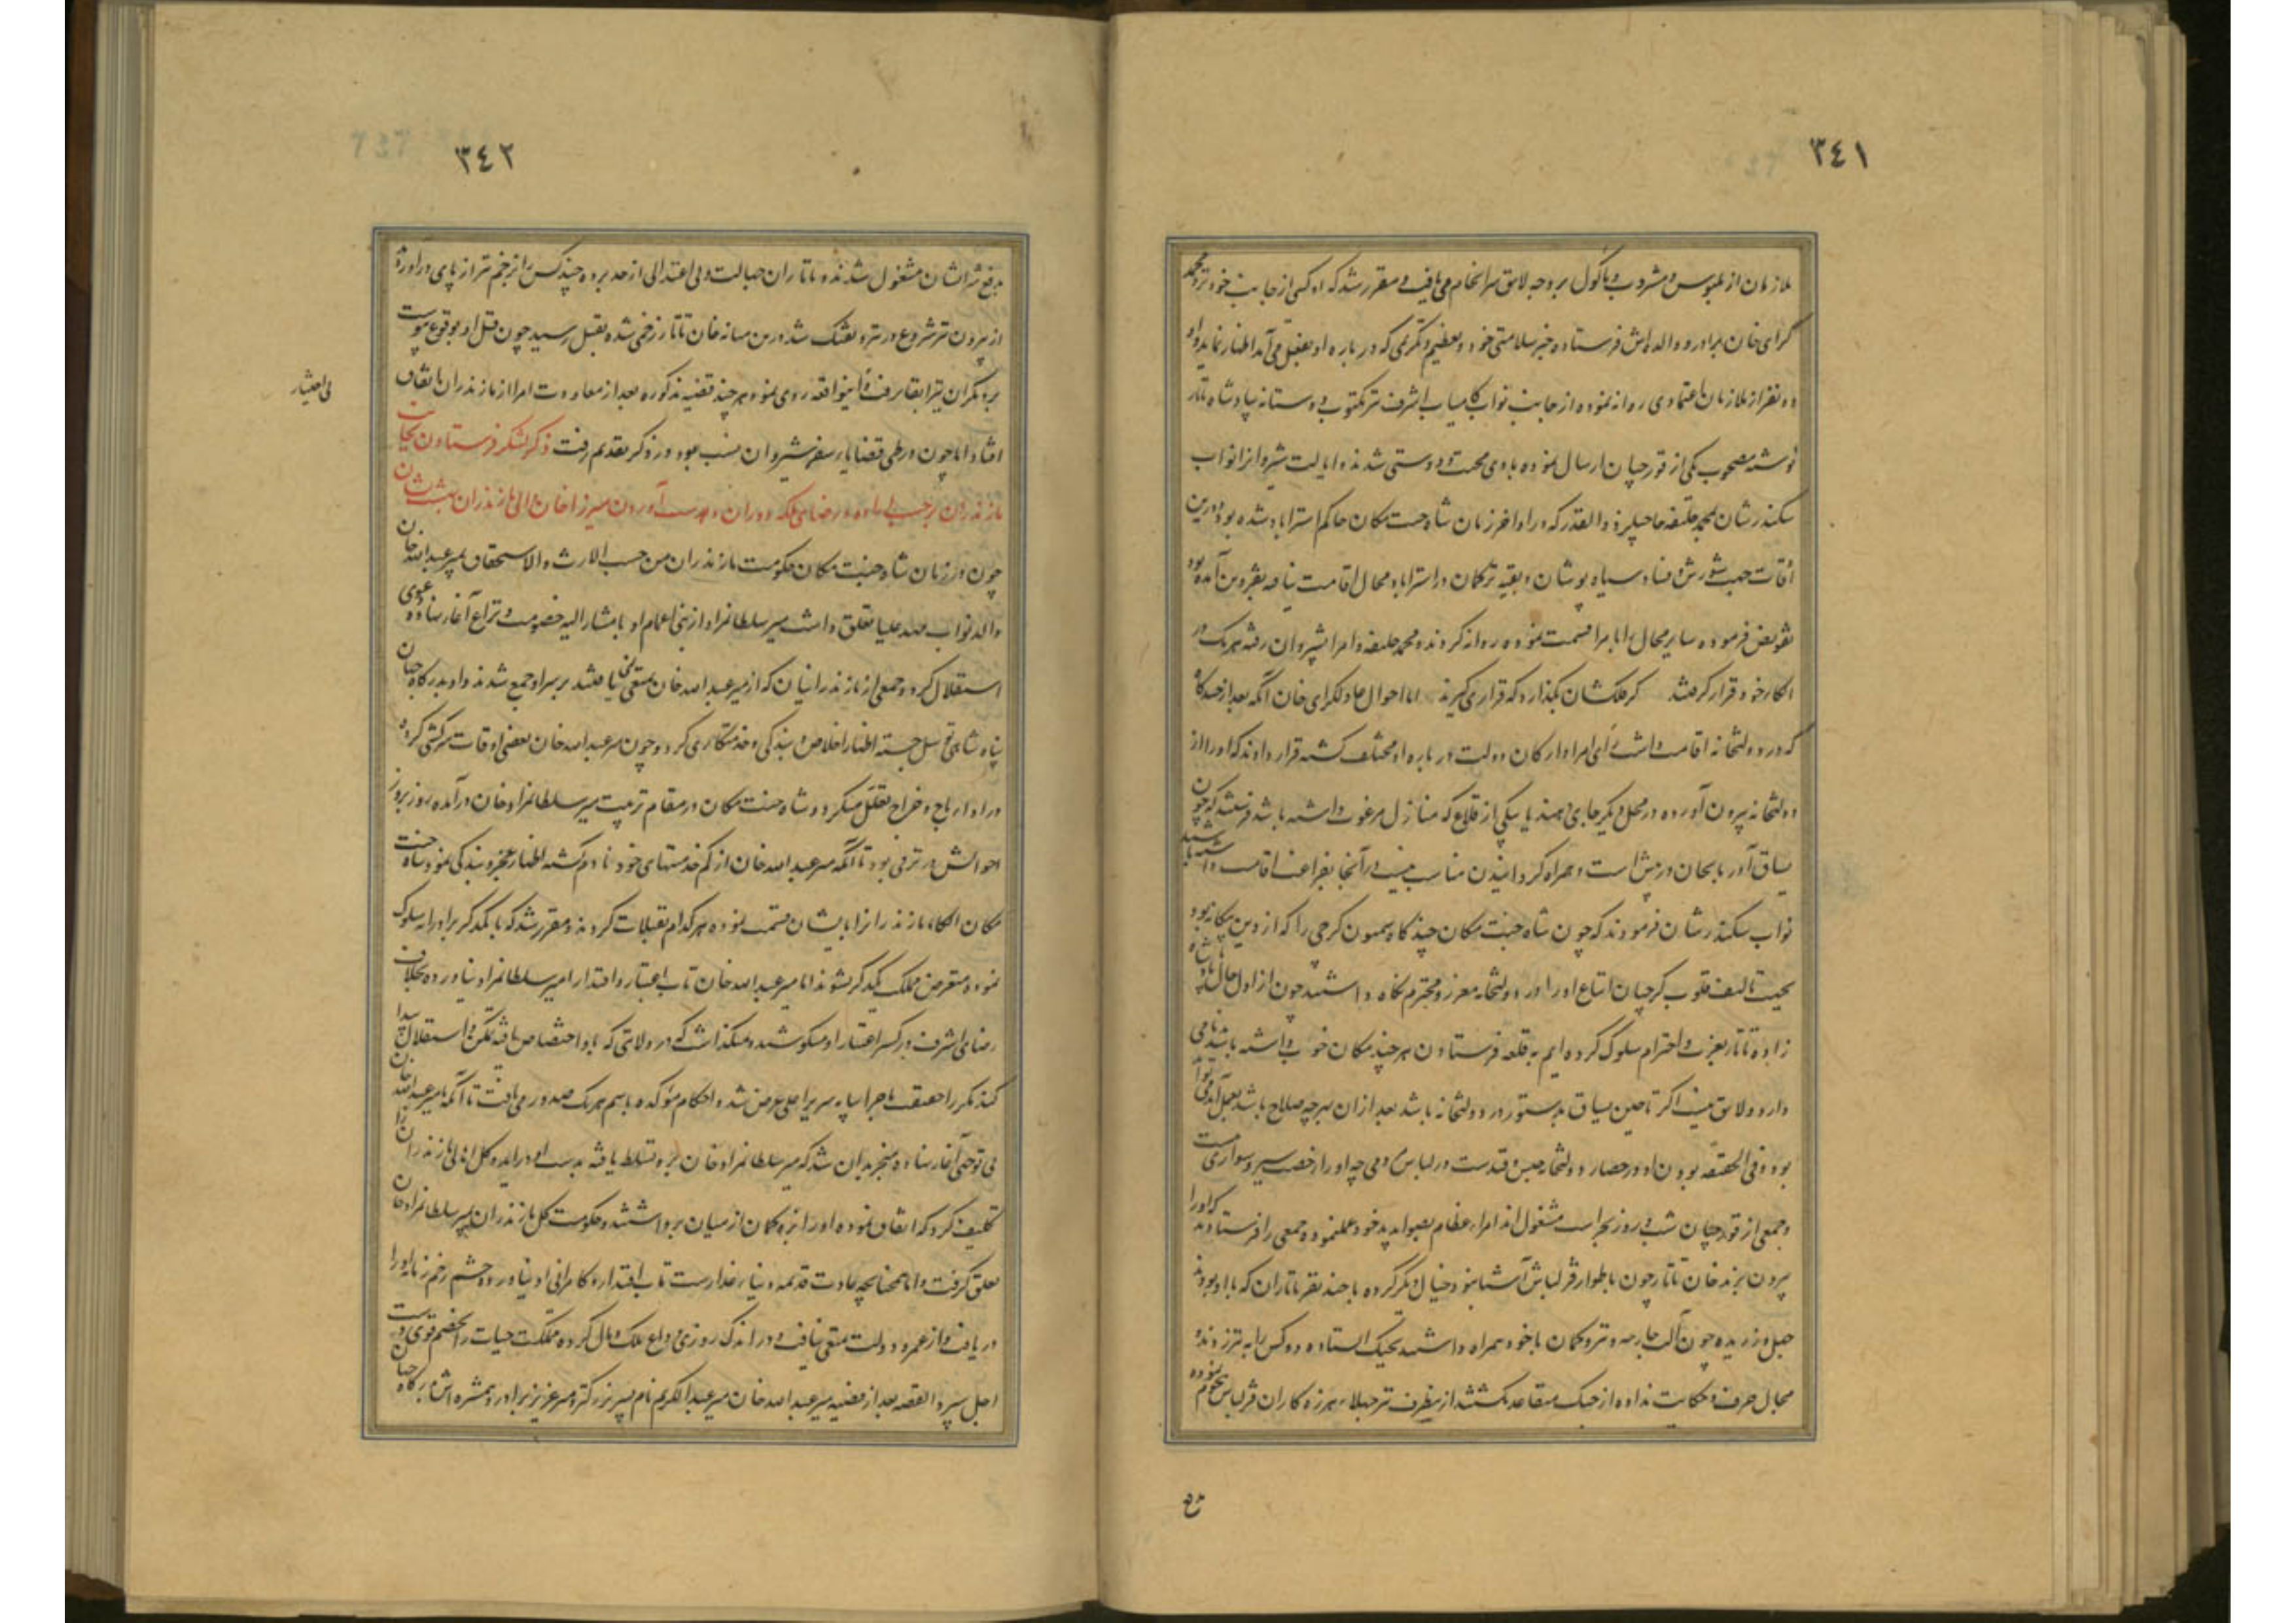 ٣٤١
ملازمان از ملبوس و مشروب و ماکول بر وجه لایق سرانجام می یافت و مقرر شد که او کسی از جانب خود نزد محمد
کرای خان برادر و والده اش فرستاده خبر سلامتی خود و تعظیم و تکریمی که در باره او بفعل می آمد اظهار نماید و او
دو نفر از ملازمان اعتمادی روانه نموده از جانب نواب کامیاب اشرف نیز مکتوب دوستانه بپادشاه تاتار
نوشته مصحوب یکی از قورچیان ارسال نموده بادی محبت و دوستی شدند و ایالت شیروانرا نواب
سکندرشان بمحمد خلیفه حاجیلر ذوالقدر که در اواخر زمان شاه جنت مکان حاکم استراباد شده بود و درین
اوقات جهت شورش و فساد سیاه پوشان و بقیه ترکمان در استراباد مجال اقامت نیافته بقزوین آمده بود
تفویض فرموده سایر محال را بامرا قسمت نموده روانه کردند و محمد خلیفه و امرا بشیروان رفته هر یک در
الکاء خود قرار گرفتند کر فلکشان بگذارد که قراری گیرند اما احوال عادلکرای خان آنکه بعد از چند گاه
که در دولتخانه اقامت داشت رای امرا و ارکان دولت در باره او مختلف گشته قرار دادند که او را از
دولتخانه بیرون آورده در محل دیگر جای دهند یا بیکی از قلاع که منازل مرغوب داشته باشد فرستند که چون
یساق آذربایجان در پیش است و همراه گردانیدن مناسب نیست در آنجا بفراغت اقامت داشته باشد
نواب سکندرشان فرمودند که چون شاه جنت مکان چند گاه سمیون گرجی را که از دین بیگانه بود
بجهت تالیف قلوب گرجیان اتباع او را در دولتخانه معزز و محترم نگاه داشتند چون از اول حال با پادشاه
زاده تاتار بعزت و احترام سلوک کرده ایم به قلعه فرستادن هر چند مکان خوب داشته باشد بدنامی
دارد و لایق نیست اگر تا حین یساق بدستور در دولتخانه باشد بعد از آن هر چه صلاح باشد بعمل آید می تواند
بود و فی الحقیقه بودن او در حصار دولتخانه حبس و قیدست در لباس و می چه او را رخصت سیر و سواری نیست
و جمعی از قورچیان شب و روز بحراست مشغول اند امراء عظام بصوابدید خود عمل نموده جمعی را فرستادند که او را
بیرون برند خان تاتار چون باطوار قزلباش آشنا نبود خیال دیگر کرده با چند نفر تاتاران که با او بودند
حیل ورزیده چون آلت جارحه و تیر و کمان با خود همراه داشتند بجنگ ایستاده دو کس را به تیر زدند و
مجال حرف و حکایت نداده از جنگ متقاعد نگشتند ازینطرف نیز جهلاء هرزه کاران قزلباش هجوم نموده
بدفع
٣٤٢
بدفع شر ایشان مشغول شدند و تاتاران جهالت و بی اعتدالی از حد برده چند کس را از زخم تیر از پای درآوردند
از بیرون نیز شروع در تیر و تفنگ شد درین میانه خان تاتار زخمی شده بقتل رسید چون قتل او بوقوع پیوست
بر دیگران نیز ابقا نرفت و اینواقعه روی نمود هر چند قضیه مذکوره بعد از معاودت امرا از مازندران اتفاق
بی اختیار
افتاد اما چون در طی قضایاء سفر شیروان انسب بود در ذکر تقدیم رفت ذکر لشکر فرستادن بجانب
مازندران بر حسب اراده و رضای ملکه دوران و بدست آوردن میرزا خان والی مازندران بهشت نشان
چون در زمان شاه جنت مکان حکومت مازندران من حسب الارث و الاستحقاق بمیر عبدالله خان
والد نواب مهد علیا تعلق داشت میر سلطانمراد از بنی اعمام او با مشارالیه خصومت و نزاع آغاز نهاده دعوی
استقلال کرد و جمعی از مازندرانیان که از میر عبدالله خان متقی نمی یافتند بر سر او جمع شدند و او بدرگاه جهان
پناه شاهی توسل جسته اظهار اخلاص و بندگی و خدمتکاری کرد و چون میر عبدالله خان بعضی اوقات سرکشی کرده
در اداء باج و خراج تعلل میکرد و شاه جنت مکان در مقام تربیت میر سلطانمراد خان درآمده روز بروز
احوالش در ترقی بود تا آنکه میر عبدالله خان از کم خدمتیهای خود نادم گشته اظهار عجز و بندگی نمود شاه جنت
مکان الکاء مازندرانرا بایشان قسمت نموده هر کدام تقبلات کردند و مقرر شد که با یکدیگر برادرانه سلوک
نموده متعرض ملک یکدیگر نشوند اما میر عبدالله خان تاب اعتبار و اقتدار میر سلطانمراد نیاورده بخلاف
رضای اشرف در کسر اعتبار او میکوشید و نمیگذاشت که در ولایتی که باو اختصاص یافته تمکن و استقلال پیدا
کند مکررا حقیقت ماجرا بپایه سریر اعلی عرض شد و احکام مؤکده باسم هر یک صدور می یافت تا آنکه با میر عبدالله خان
بی توجهی آغاز نهاد و منجر بدان شد که میر سلطانمراد خان برو تسلط یافته بدست او درآید و کل اهالی مازندران را
تکلیف کرد که اتفاق نموده او را بزه کمان از میان برداشتند و حکومت کل مازندران بمیر سلطانمراد خان
تعلق گرفت و اما همچنانچه عادت قدیمه دنیاء غدارست تاب اقتدار و کامرانی او نیاورده چشم زخم زمانه او را
دریافت و از عمر و دولت متقی نیافت و در اندک روزی وداع ملک و مال کرده مملکت حیات را بخصم قوی دست
اجل سپرد القصه بعد از قضیه میر عبدالله خان میر عبدالکریم نام پسر بزرگتر و میر عزیز برادر و همشیره اش بدرگاه جهان